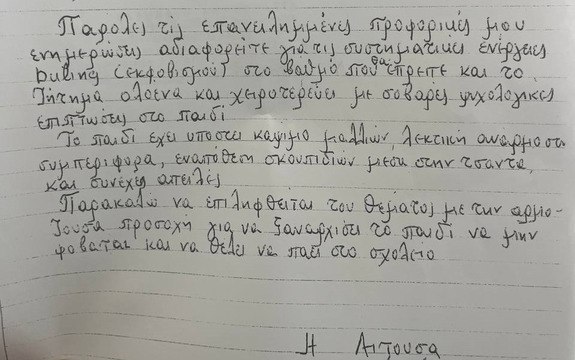 Παρολες τις επανειλημμένες προφορικές μου
ενημερώσεις αδιαφορείτε για τις συστηματικες ενέργειες
buling (εκφοβισμού) στο βαθμό που θα έπρεπε και το
Ζήτημα ολοένα και χειροτερεύει με σοβαρες ψυχολογικες
επιπτώσεις στο παιδί
Το παιδί εχει υποστεί κάψιμο μαλλιών, λεκτική αναρμοστη
συμπεριφορα, εναπόθεση σκουπιδιών μεσα στην τσαντα,
και συνέχες απειλές
Παρακαλω να επιληφθείται του θεματος με την αρμο-
Ζουσα προσοχή για να ξαναρχισει το παιδι να μην
φοβαται και να θελει να παει στο σχολειο
Η Αιτουσα